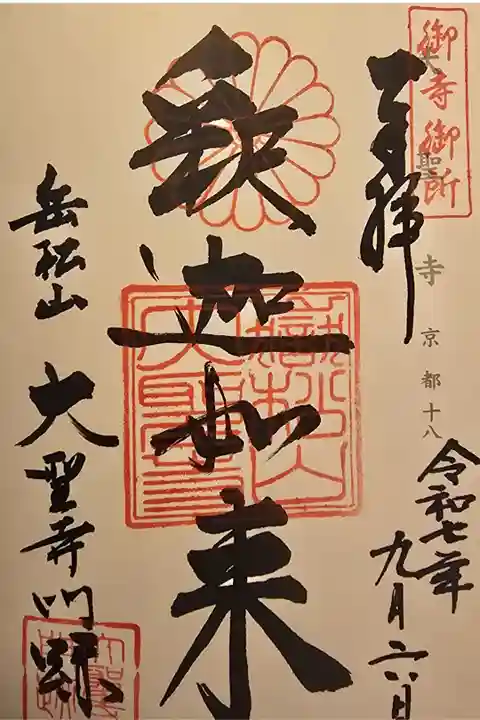 御寺御所
大聖寺 京都十八
奉拝
令和七年
九月六日
釈迦如来
嶽松山
大聖寺
岳松山 大聖寺門跡